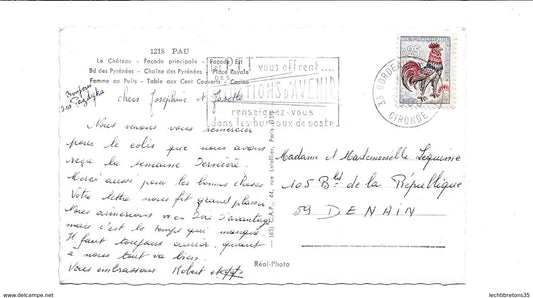 1218 PAU
Le Château - Façade principale - Façade Est
Bd des Pyrénées - Chaîne des Pyrénées - Place Royale
Femme au Puits - Table aux Cent Couverts - Casino
Bonjour
chers Joséphine et Josette
Nous venons vous remercier
pour le colis que nous avons
reçu la semaine dernière.
Merci aussi pour les bonnes choses
Votre lettre nous fit grand plaisir
Nous aimerions vous écrire d'avantage
mais c'est le temps qui manque.
Il faut toujours courir, quant
à nous tout va bien
Vous embrassons Robert et
vous offrent....
D'AVENIR
renseignez-vous
dans les bureaux de poste
25
33 BORDEAUX
GIRONDE
Madame et Mademoiselle Lequimme
105 Bld de la République
59 DENAIN
Réal-Photo
lechtibretons35